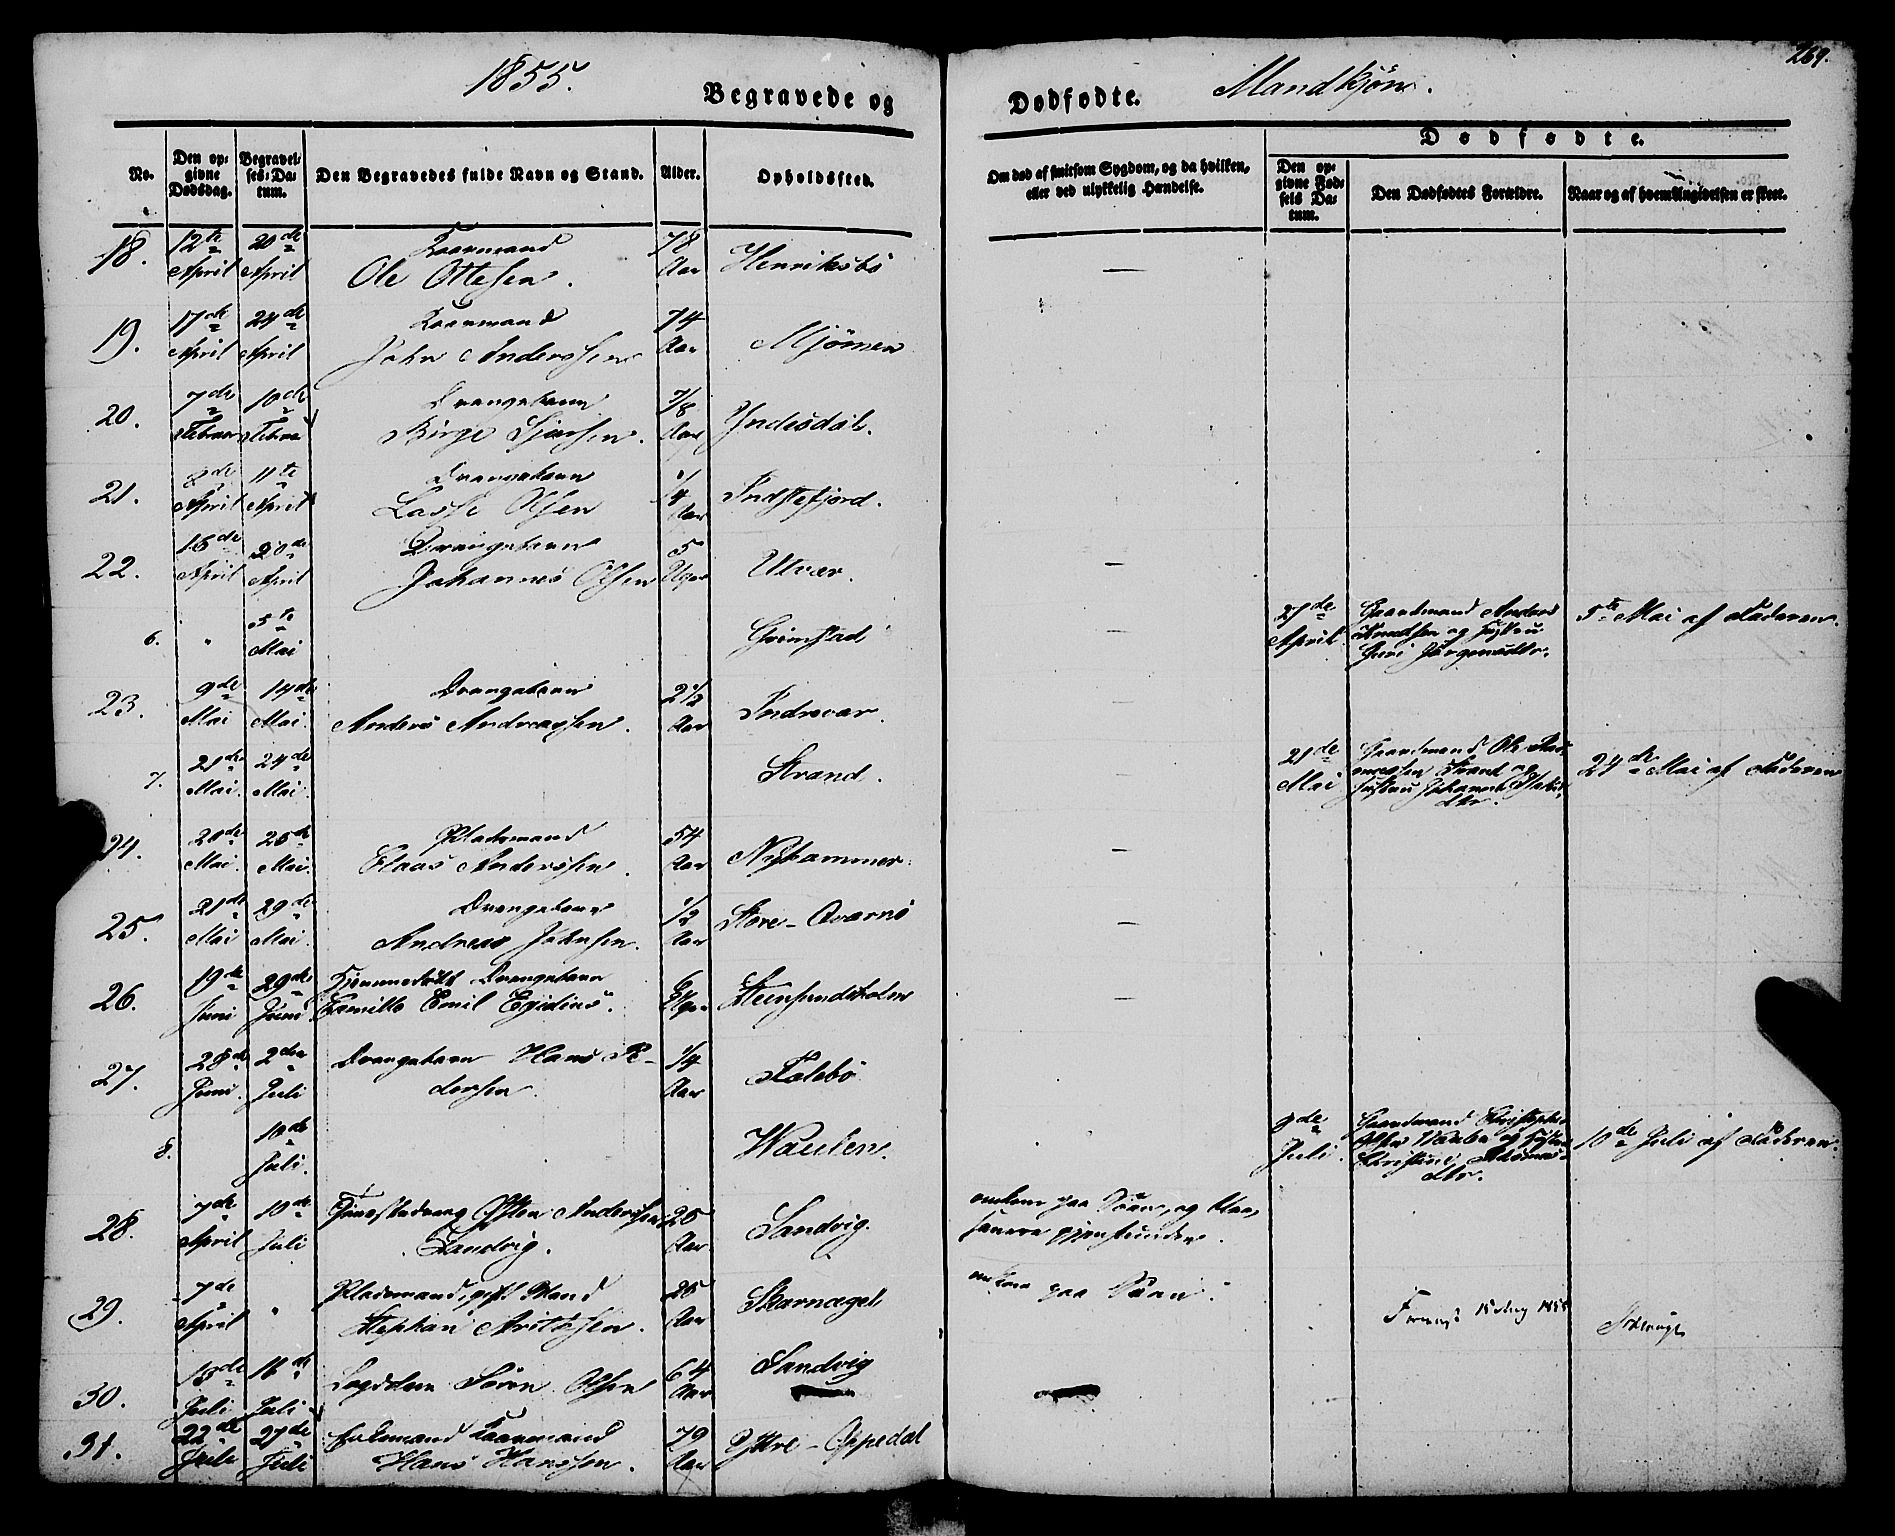 1855.
Begravede og
Dødfødte.
Mandkjøn.
269.
No.
Den opgivne Dødsdag.
Begravelses-Datum.
Den Begravedes fulde Navn og Stand.
Alder.
Opholdssted.
Om død af smitsom Sygdom, og da hvilken, eller ved ulykkelig Hændelse.
Dødfødte.
Den opgivne Fødsels Datum.
Den Dødfødtes Forældre.
Naar og af hvem Angivelsen er skeet.
18. 12te April 20de April Kaarmand Ole Ottesen. 78 Aar Henriksbø —
19. 17de April 24de April Kaarmand John Anderssen 74 Aar Mjømen
20. 7de Februar 10de Februar Drengebarn Birge 7/8 Aar Yndesdal.
21. 8de April 11te April Drengebarn Lasse Olsen 1/4 Aar Indstefjord.
22. 16de April 20de April Drengebarn Johannes Olsen 5 Uger Utvær. —
6. " 5te Mai Grimstad — 27de April Gaardmand Anders Knudsen og Hustru Guri Jørgensdtr. 5te Mai af Faderen.
23. 9de Mai 14de Mai. Drengebarn Anders Andreassen. 2 1/2 Aar Indrevær. —
7. 21de Mai. 24de Mai. Strand. — 21de Mai Gaardmand Ole Strand og Hustru Johanna dtr. 24de Mai af Faderen
24. 20de Mai. 25de Mai. Pladsmand Claas Anderssen. 54 Aar Nyhammer. —
25. 21de Mai 29de Mai. Drengebarn Andreas Johnsen. 1/2 Aar Store-Qværnø —
26. 19de Juni 29de Juni Hjemmedøbt Drengebarn Camillo Emil Egidius. 6 Uger Steensundholm —
27. 28de Juni. 2den Juli Drengebarn Hans Pedersen. 1/4 Aar Folebø
8. 10de Juli. Waulen. 9de Juli. Gaardmand Christopher Olsen Vaulen og Hustru Christine dtr. 10de Juli af Faderen.
28. 7de April 10de Juli Tjenestedreng Osten Anderssen Sandvig. 26 Aar Sandvig. omkom paa Søen, og
29. 7de April " Pladsmand, gift Mand Stephan 26 Aar omkom paa Søen.
30. 13de Juli 16de Juli Lægdslem Søren Olsen 64 Aar Sandvig
31. 22de Juli 27de Juli Enkemand Kaarmand Hans Hanssen. 79 Aar Yttre-Oppedal
15 Aug 1855